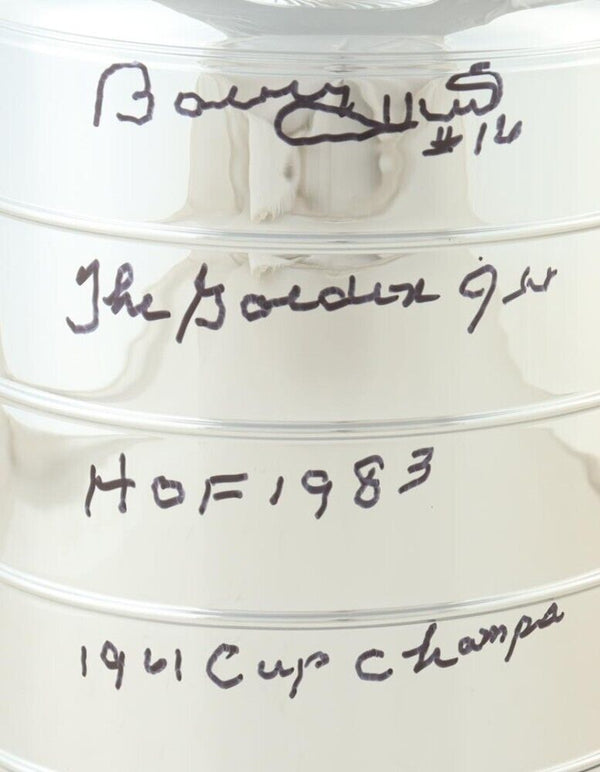 Bobby Hull
#16
The Golden Jet
HOF 1983
1961 Cup Champs